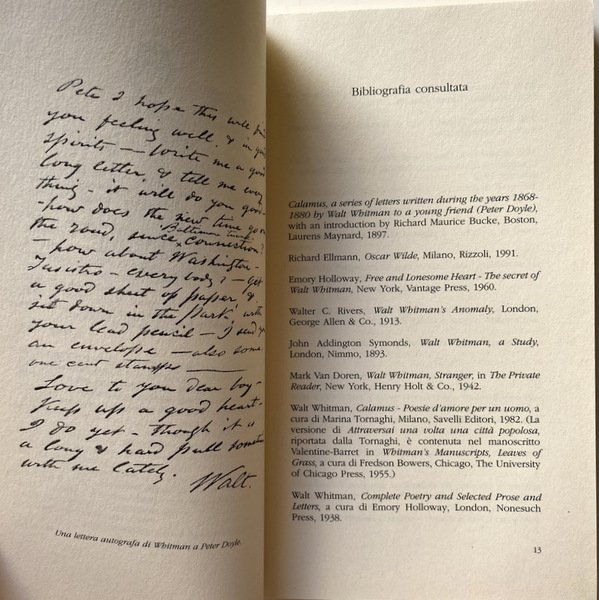 Pete I hope this will find
you feeling well, & in good
spirits — Write me a good
long letter, & tell me every
thing - it will do you good -
- how does the new time go on
the road, since Baltimore tunnel connection?
- how about Washington -
Tasistro - everybody? - get
a good sheet of paper, &
set down in the Park, with
your lead pencil — I send you
an envelope — also some
one cent stamps —
Love to you dear boy -
Keep up a good heart -
I do yet - though it is
a long & hard pull sometimes
with me lately.
Walt.
Una lettera autografa di Whitman a Peter Doyle.
Bibliografia consultata
Calamus, a series of letters written during the years 1868-
1880 by Walt Whitman to a young friend (Peter Doyle),
with an introduction by Richard Maurice Bucke, Boston,
Laurens Maynard, 1897.
Richard Ellmann, Oscar Wilde, Milano, Rizzoli, 1991.
Emory Holloway, Free and Lonesome Heart - The secret of
Walt Whitman, New York, Vantage Press, 1960.
Walter C. Rivers, Walt Whitman's Anomaly, London,
George Allen & Co., 1913.
John Addington Symonds, Walt Whitman, a Study,
London, Nimmo, 1893.
Mark Van Doren, Walt Whitman, Stranger, in The Private
Reader, New York, Henry Holt & Co., 1942.
Walt Whitman, Calamus - Poesie d'amore per un uomo, a
cura di Marina Tornaghi, Milano, Savelli Editori, 1982. (La
versione di Attraversai una volta una città popolosa,
riportata dalla Tornaghi, è contenuta nel manoscritto
Valentine-Barret in Whitman's Manuscripts, Leaves of
Grass, a cura di Fredson Bowers, Chicago, The University
of Chicago Press, 1955.)
Walt Whitman, Complete Poetry and Selected Prose and
Letters, a cura di Emory Holloway, London, Nonesuch
Press, 1938.
13